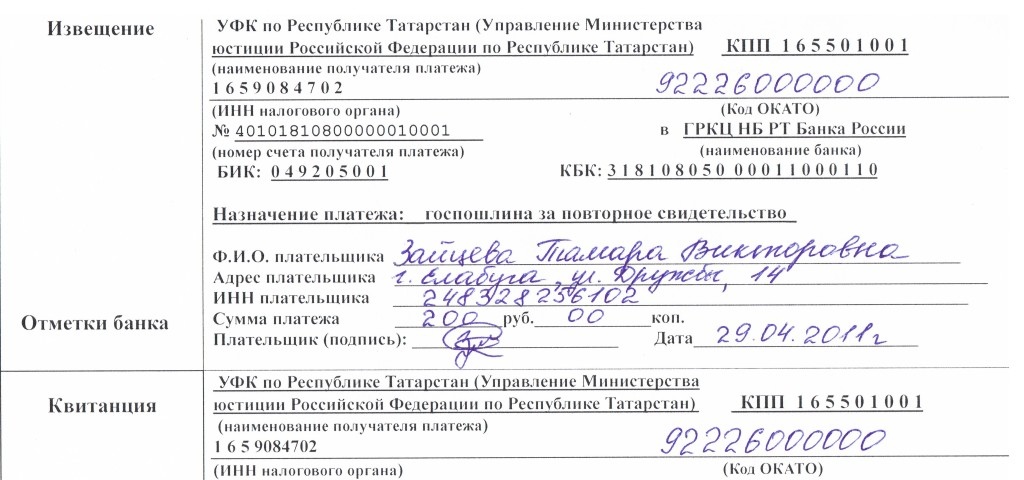 Извещение
УФК по Республике Татарстан (Управление Министерства
юстиции Российской Федерации по Республике Татарстан) КПП 1 6 5 5 0 1 0 0 1
(наименование получателя платежа)
1 6 5 9 0 8 4 7 0 2 92226000000
(ИНН налогового органа) (Код ОКАТО)
№ 40101810800000010001 в ГРКЦ НБ РТ Банка России
(номер счета получателя платежа) (наименование банка)
БИК: 0 4 9 2 0 5 0 0 1 КБК: 3 1 8 1 0 8 0 5 0 0 0 0 1 1 0 0 0 1 1 0
Назначение платежа: госпошлина за повторное свидетельство
Ф.И.О. плательщика Зайцева Тамара Викторовна
Адрес плательщика г. Елабуга, ул. Дружбы, 14
ИНН плательщика 248328256102
Отметки банка
Сумма платежа 200 руб. 00 коп.
Плательщик (подпись): Дата 29.04.2011г
Квитанция
УФК по Республике Татарстан (Управление Министерства
юстиции Российской Федерации по Республике Татарстан) КПП 1 6 5 5 0 1 0 0 1
(наименование получателя платежа)
1 6 5 9084702 92226000000
(ИНН налогового органа) (Код ОКАТО)